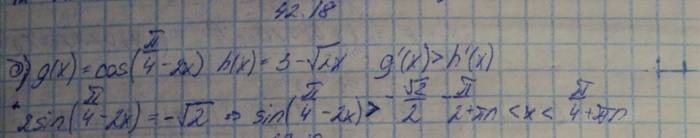 42.18
б) g(x) = cos(π/4 - 2x) h(x) = 3 - √2x g'(x) > h'(x)
2sin(π/4 - 2x) = -√2 ⇒ sin(π/4 - 2x) > -√2/2 -π/2+πn < x < π/4+πn